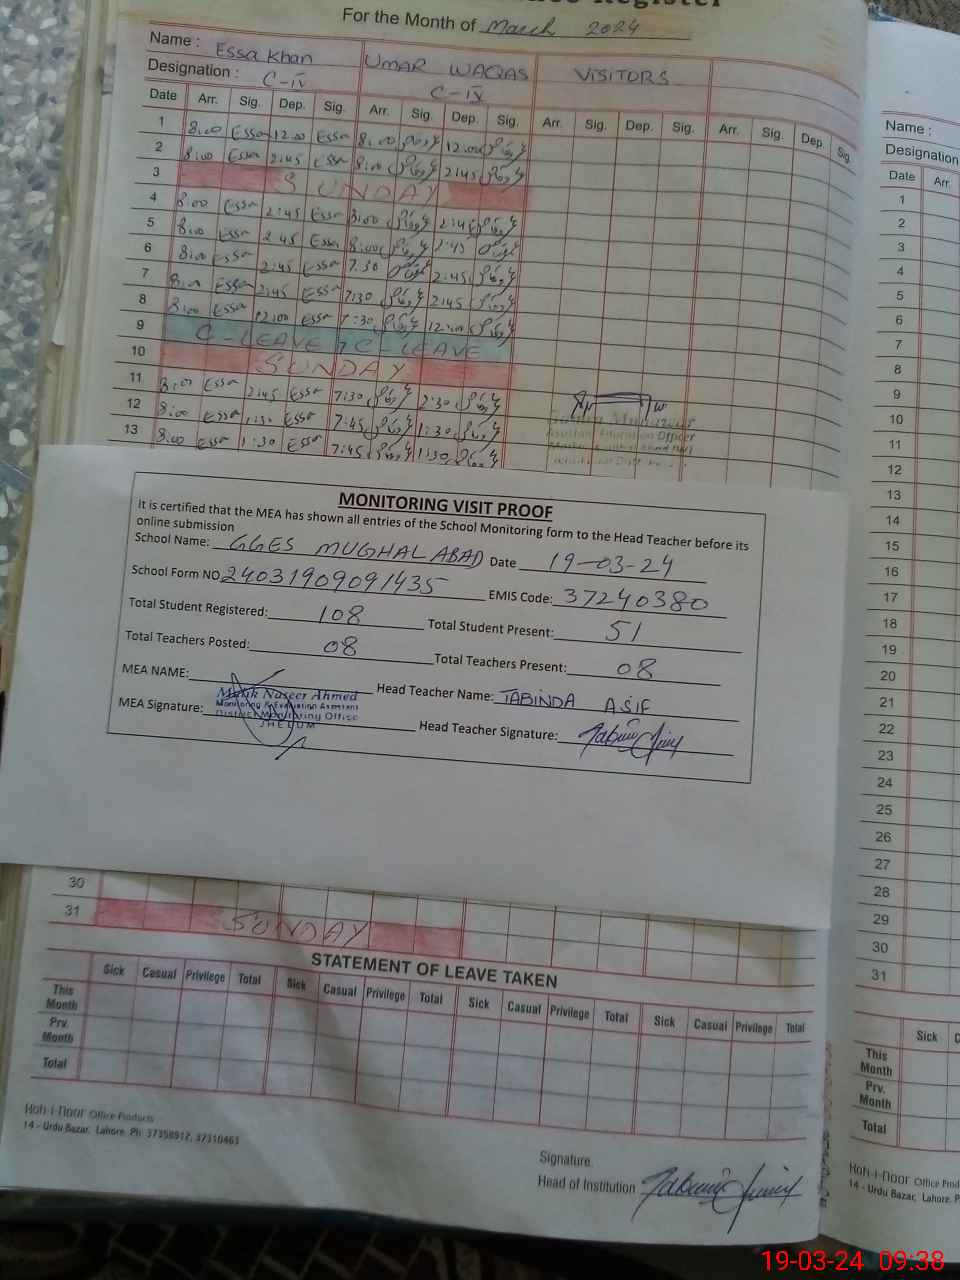 For the Month of March 2024
Name : Essa Khan UMAR WAQAS VISITORS
Designation : C-IV C-IV
Date Arr. Sig. Dep. Sig. Arr. Sig. Dep. Sig. Arr. Sig. Dep. Sig. Arr. Sig. Dep. Sig.
1 8:00 Essa 12:00 Essa 8:00 12:00
2 8:00 Essa 2:45 Essa 8:00 2:45
3 SUNDAY
4 8:00 Essa 2:45 Essa 8:00 2:45
5 8:00 Essa 2:45 Essa 8:00 2:45
6 8:00 Essa 2:45 Essa 7:30 2:45
7 8:00 Essa 2:45 Essa 7:30 2:45
8 8:00 Essa 12:00 Essa 7:30 12:00
9 C-LEAVE C-LEAVE
10 SUNDAY
11 8:00 Essa 2:45 Essa 7:30 2:30
12 8:00 Essa 1:30 Essa 7:45 1:30
13 8:00 Essa 1:30 Essa 7:45 1:30
Assistant Education Officer
MONITORING VISIT PROOF
It is certified that the MEA has shown all entries of the School Monitoring form to the Head Teacher before its
online submission
School Name: GGES MUGHAL ABAD Date 19-03-24
School Form NO 24031909091435 EMIS Code: 37240380
Total Student Registered: 108 Total Student Present: 51
Total Teachers Posted: 08 Total Teachers Present: 08
MEA NAME: Malik Naseer Ahmed Head Teacher Name: TABINDA ASIF
Monitoring & Evaluation Assistant
MEA Signature: District Monitoring Office Head Teacher Signature:
JHELUM
30
31 SUNDAY
STATEMENT OF LEAVE TAKEN
Sick Casual Privilege Total Sick Casual Privilege Total Sick Casual Privilege Total Sick Casual Privilege Total
This Month
Prv. Month
Total
Koh-i-Noor Office Products
14 - Urdu Bazar, Lahore. Ph: 37358912, 37310463
Signature
Head of Institution
Name :
Designation
Date Arr.
1
2
3
4
5
6
7
8
9
10
11
12
13
14
15
16
17
18
19
20
21
22
23
24
25
26
27
28
29
30
31
Sick
This Month
Prv. Month
Total
Koh-i-Noor Office
14 - Urdu Bazar, Lahore.
19-03-24 09:38